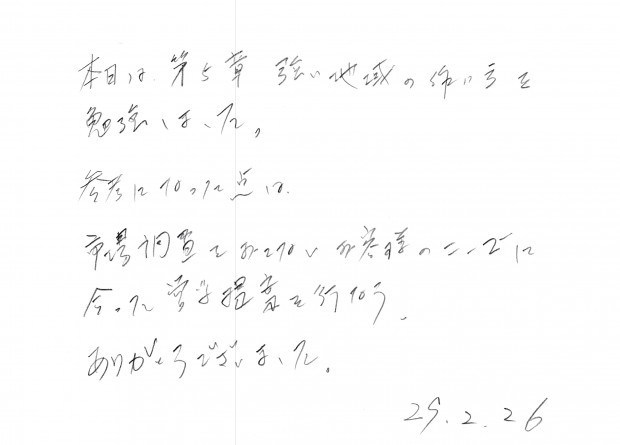 本日は、第5章 強い地域の作り方を
勉強しました。
参考になった点は、
市場調査をおこないお客様のニーズに
合った営業提案を行なう。
ありがとうございました。
29.2.26